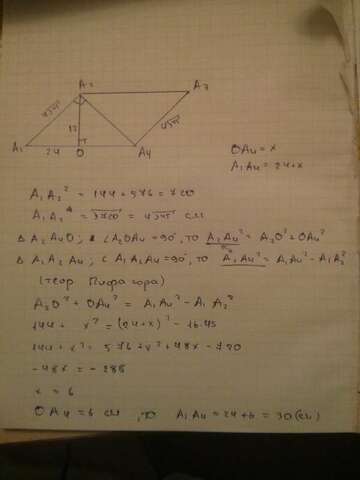 A₂
A₃
4√45
12
4√45
A₁
24
O
A₄
OA₄ = x
A₁A₄ = 24+x
A₁A₂² = 144 + 576 = 720
A₁A₂ = √720 = 4√45 см
Δ A₂A₄O; ∠A₂OA₄ = 90°, то A₂A₄² = A₂O² + OA₄²
Δ A₁A₂A₄; ∠A₁A₂A₄ = 90°, то A₂A₄² = A₁A₄² - A₁A₂²
(теор Пифагора)
A₂O² + OA₄² = A₁A₄² - A₁A₂²
144 + x² = (24+x)² - 16·45
144 + x² = 576 + x² + 48x - 720
-48x = -288
x = 6
OA₄ = 6 см, то A₁A₄ = 24+6 = 30 (см)